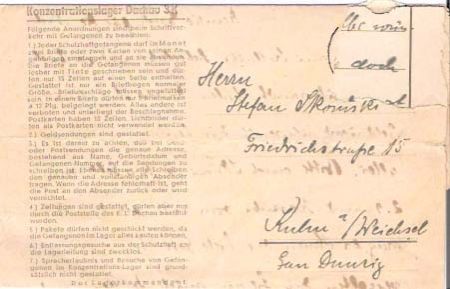 Konzentrationslager Dachau 3K
Folgende Anordnungen sind beim Schriftverkehr mit Gefangenen zu beachten:
1.) Jeder Schutzhaftgefangene darf im Monat
zwei Briefe oder zwei Karten von seinen Angehörigen
empfangen und an sie absenden.
Die Briefe an die Gefangenen müssen gut
lesbar mit Tinte geschrieben sein und dürfen
nur 15 Zeilen auf einer Seite enthalten.
Gestattet ist nur ein Briefbogen normaler
Größe. Briefumschläge müssen ungefüttert
sein. In einem Briefe dürfen nur Briefmarken
à 12 Pfg. beigelegt werden. Alles andere ist
verboten und unterliegt der Beschlagnahme.
Postkarten haben 10 Zeilen. Lichtbilder dürfen
als Postkarten nicht verwendet werden.
2.) Geldsendungen sind gestattet.
3.) Es ist darauf zu achten, daß bei Geld-
oder Postsendungen die genaue Adresse,
bestehend aus Name, Geburtsdatum und
Gefangenen-Nummer, auf die Sendungen zu
schreiben ist.
Wenn die Adresse fehlerhaft ist, geht
die Post an den Absender zurück oder wird
vernichtet.
4.) Zeitungen sind gestattet, dürfen aber nur
durch die Poststelle des K. L. Dachau bestellt
werden.
5.) Pakete dürfen nicht geschickt werden, da
die Gefangenen im Lager alles kaufen können.
6.) Entlassungsgesuche aus der Schutzhaft an
die Lagerleitung sind zwecklos.
7.) Sprecherlaubnis und Besuche von Gefangenen
im Konzentrations-Lager sind grundsätzlich
nicht gestattet.
Der Lagerkommandant
Herrn
Stefan
Friedrichstraße 15
Kulm a/Weichsel
Gau Danzig